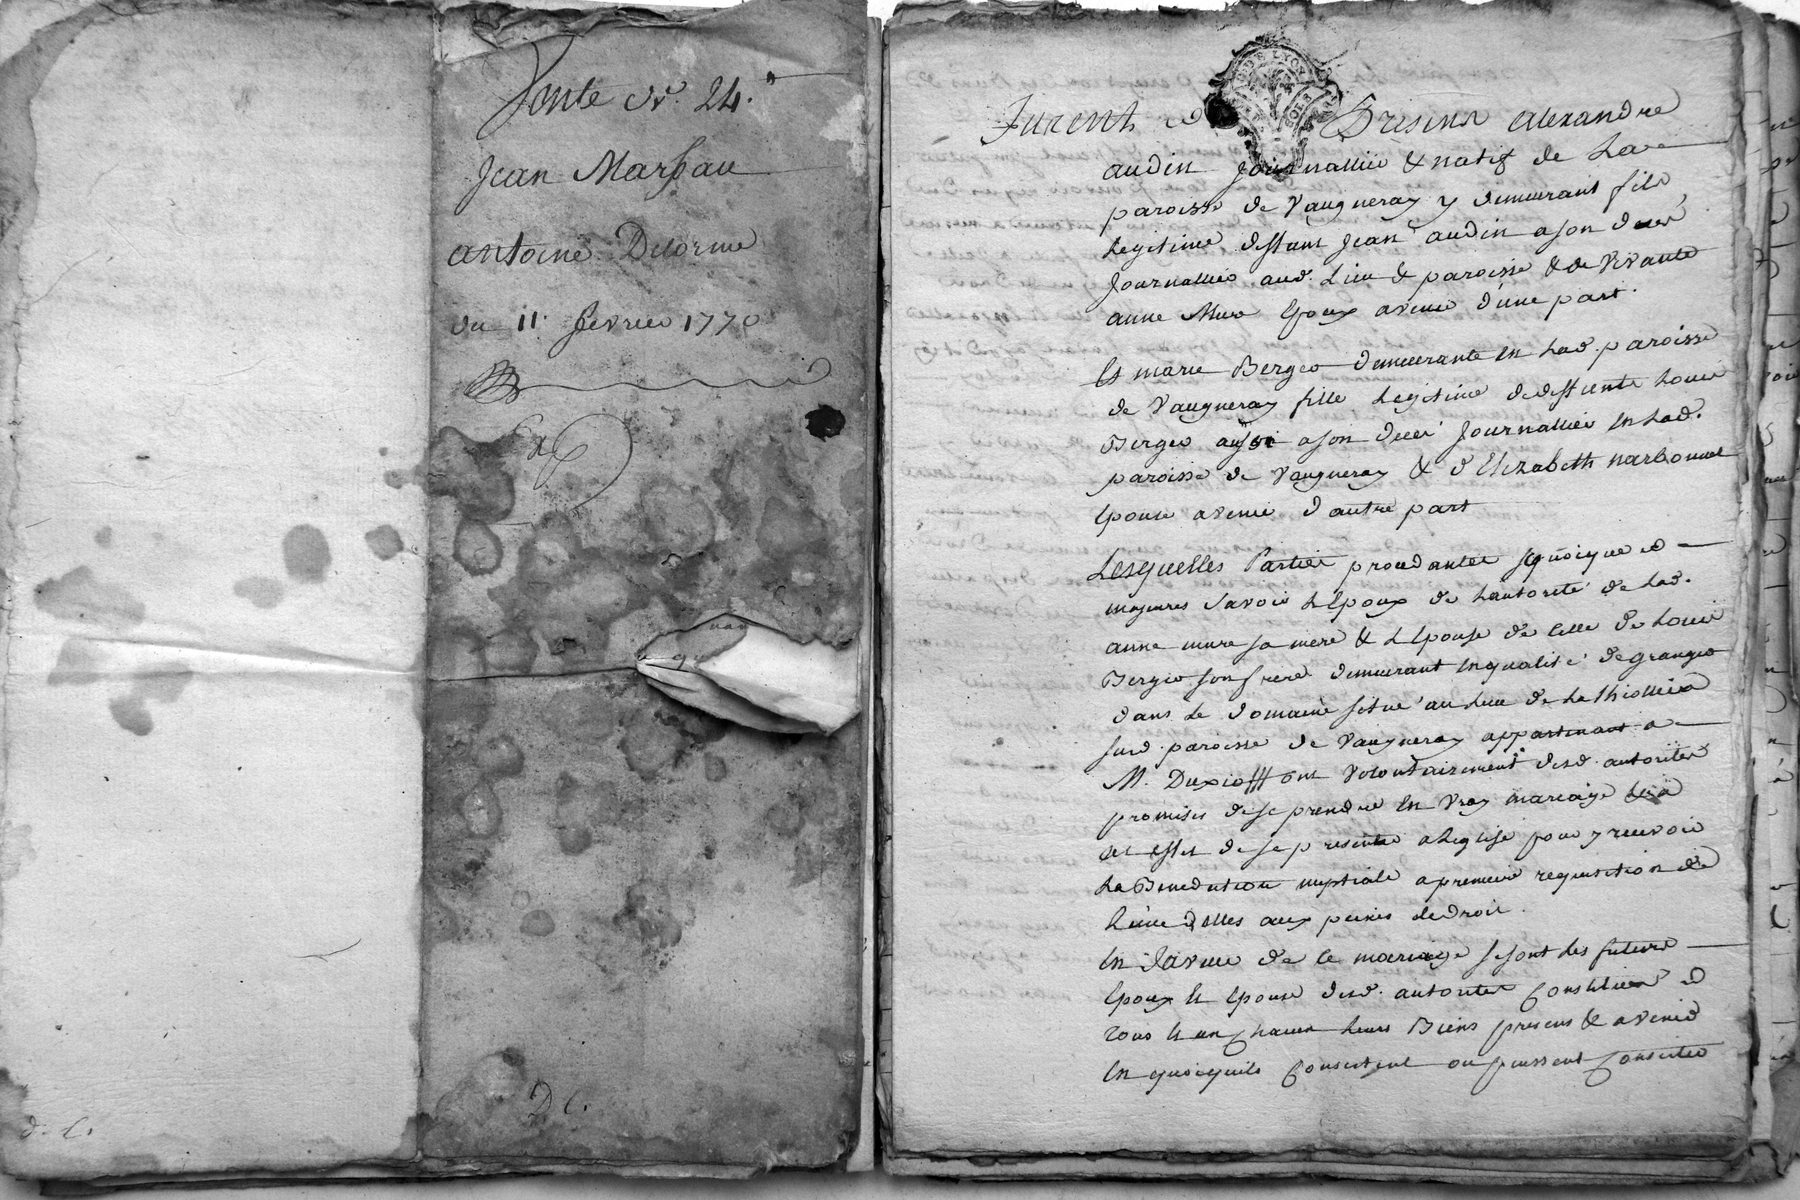 Vente
24.
Jean Marjhau
antoine Delorme
du 11. fevrier 1770
D C.
d. C.
Furent Presens alexandre
audin journallier & natif de La
paroisse de Vaugneray y demeurant fils
legitime deffunt jean audin a son decés
journallier aud. Lieu & paroisse & de vivante
anne Mure Epoux avenir d'une part.
Et marie Berger demeurante en Lad. paroisse
de Vaugneray fille Legitime de deffunt Louis
Berger aussi a son decés journallier en Lad.
paroisse de Vaugneray & d'Elizabeth narbonnet
Epouse avenir d'autre part
Lesquelles Parties procedantes quoique
majeures savoir L'Epoux de L'autorité de Lad.
anne mure sa mere & L'Epouse de Celle de Louis
Berger son frere demeurant en qualité de granger
dans Le domaine situé au lieu de La Thiollière
sud. paroisse de Vaugneray appartenant a
M. ont volontairement desd. autorités
promises de se prendre En vray mariage & a
cet effet de se presenter a L'eglise pour y recevoir
La Benediction nuptiale a premiere requisition de
L'une d'elles aux peines de droit.
En faveur de Ce mariage se sont Les futurs
Epoux Et Epouse desd. autorités Constitués
tous Et un Chacun Leurs Biens presens & avenir
En quoiqu'ils Consistent ou puissent Consister